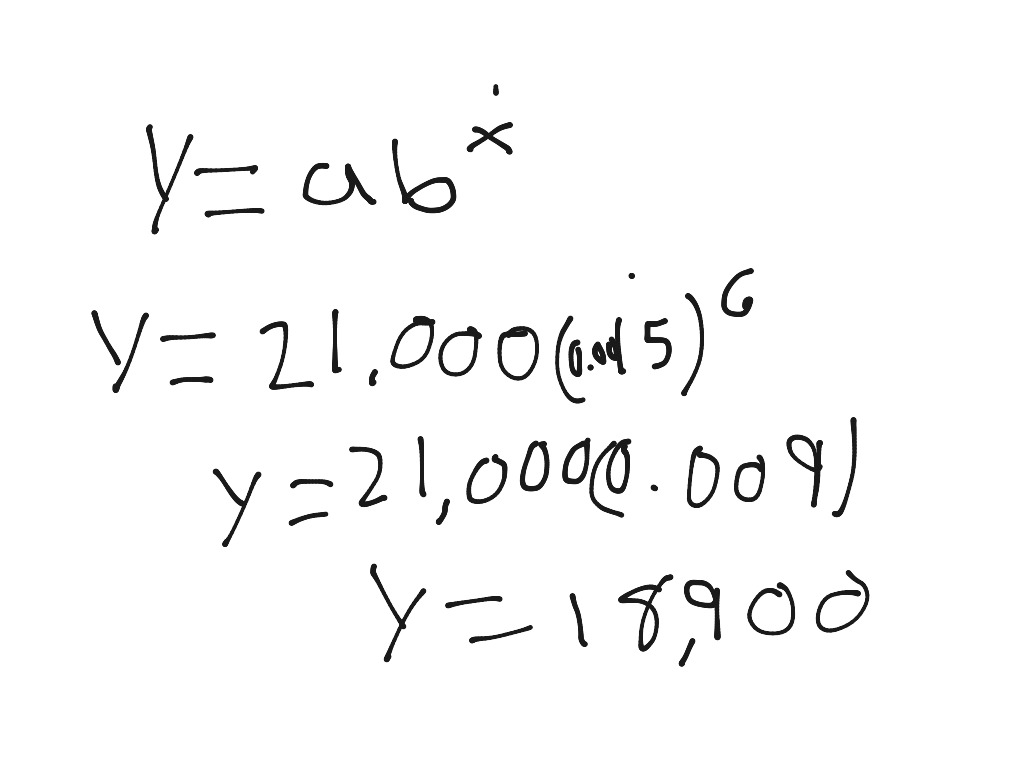 y = ab^x
y = 21,000(0.0015)^6
y = 21,000(0.009)
y = 18,900